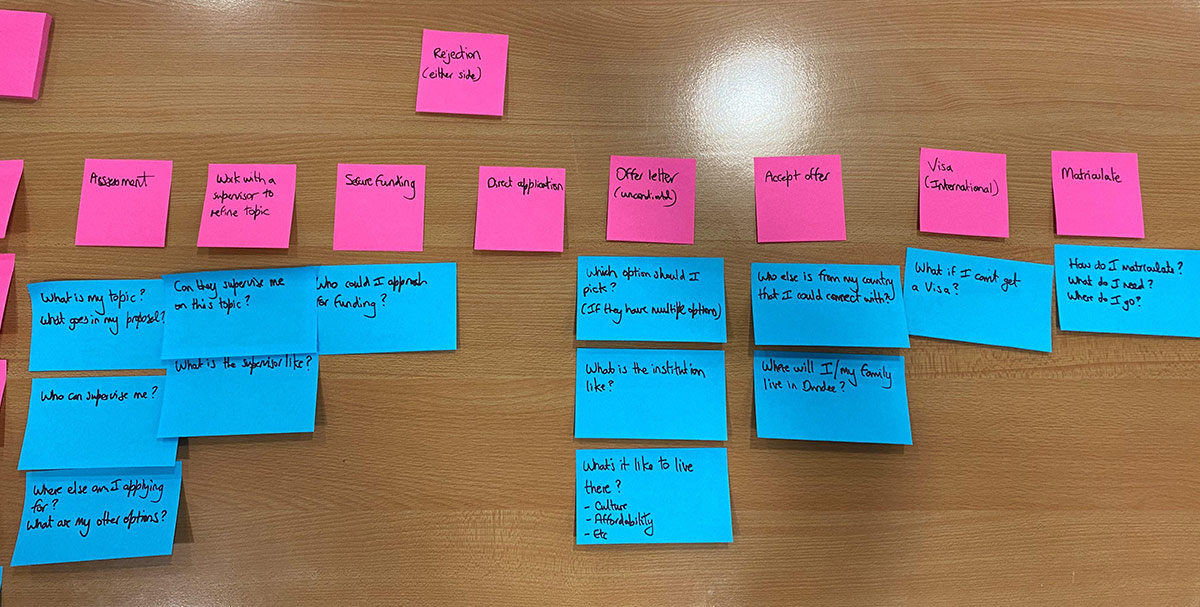 Rejection
(either side)
Assessment
Work with a
supervisor to
refine topic
Secure funding
Direct application
Offer letter
(unconditional)
Accept offer
Visa
(International)
Matriculate
What is my topic?
What goes in my proposal?
Who can supervise me?
Where else am I applying
for?
What are my other options?
Can they supervise me
on this topic?
What is the supervisor like?
Who could I approach
for funding?
Which option should I
pick?
(If they have multiple options)
What is the institution
like?
What's it like to live
there?
- Culture
- Affordability
- Etc
Who else is from my country
that I could connect with?
Where will I/my family
live in Dundee?
What if I can't get
a Visa?
How do I matriculate?
What do I need?
Where do I go?